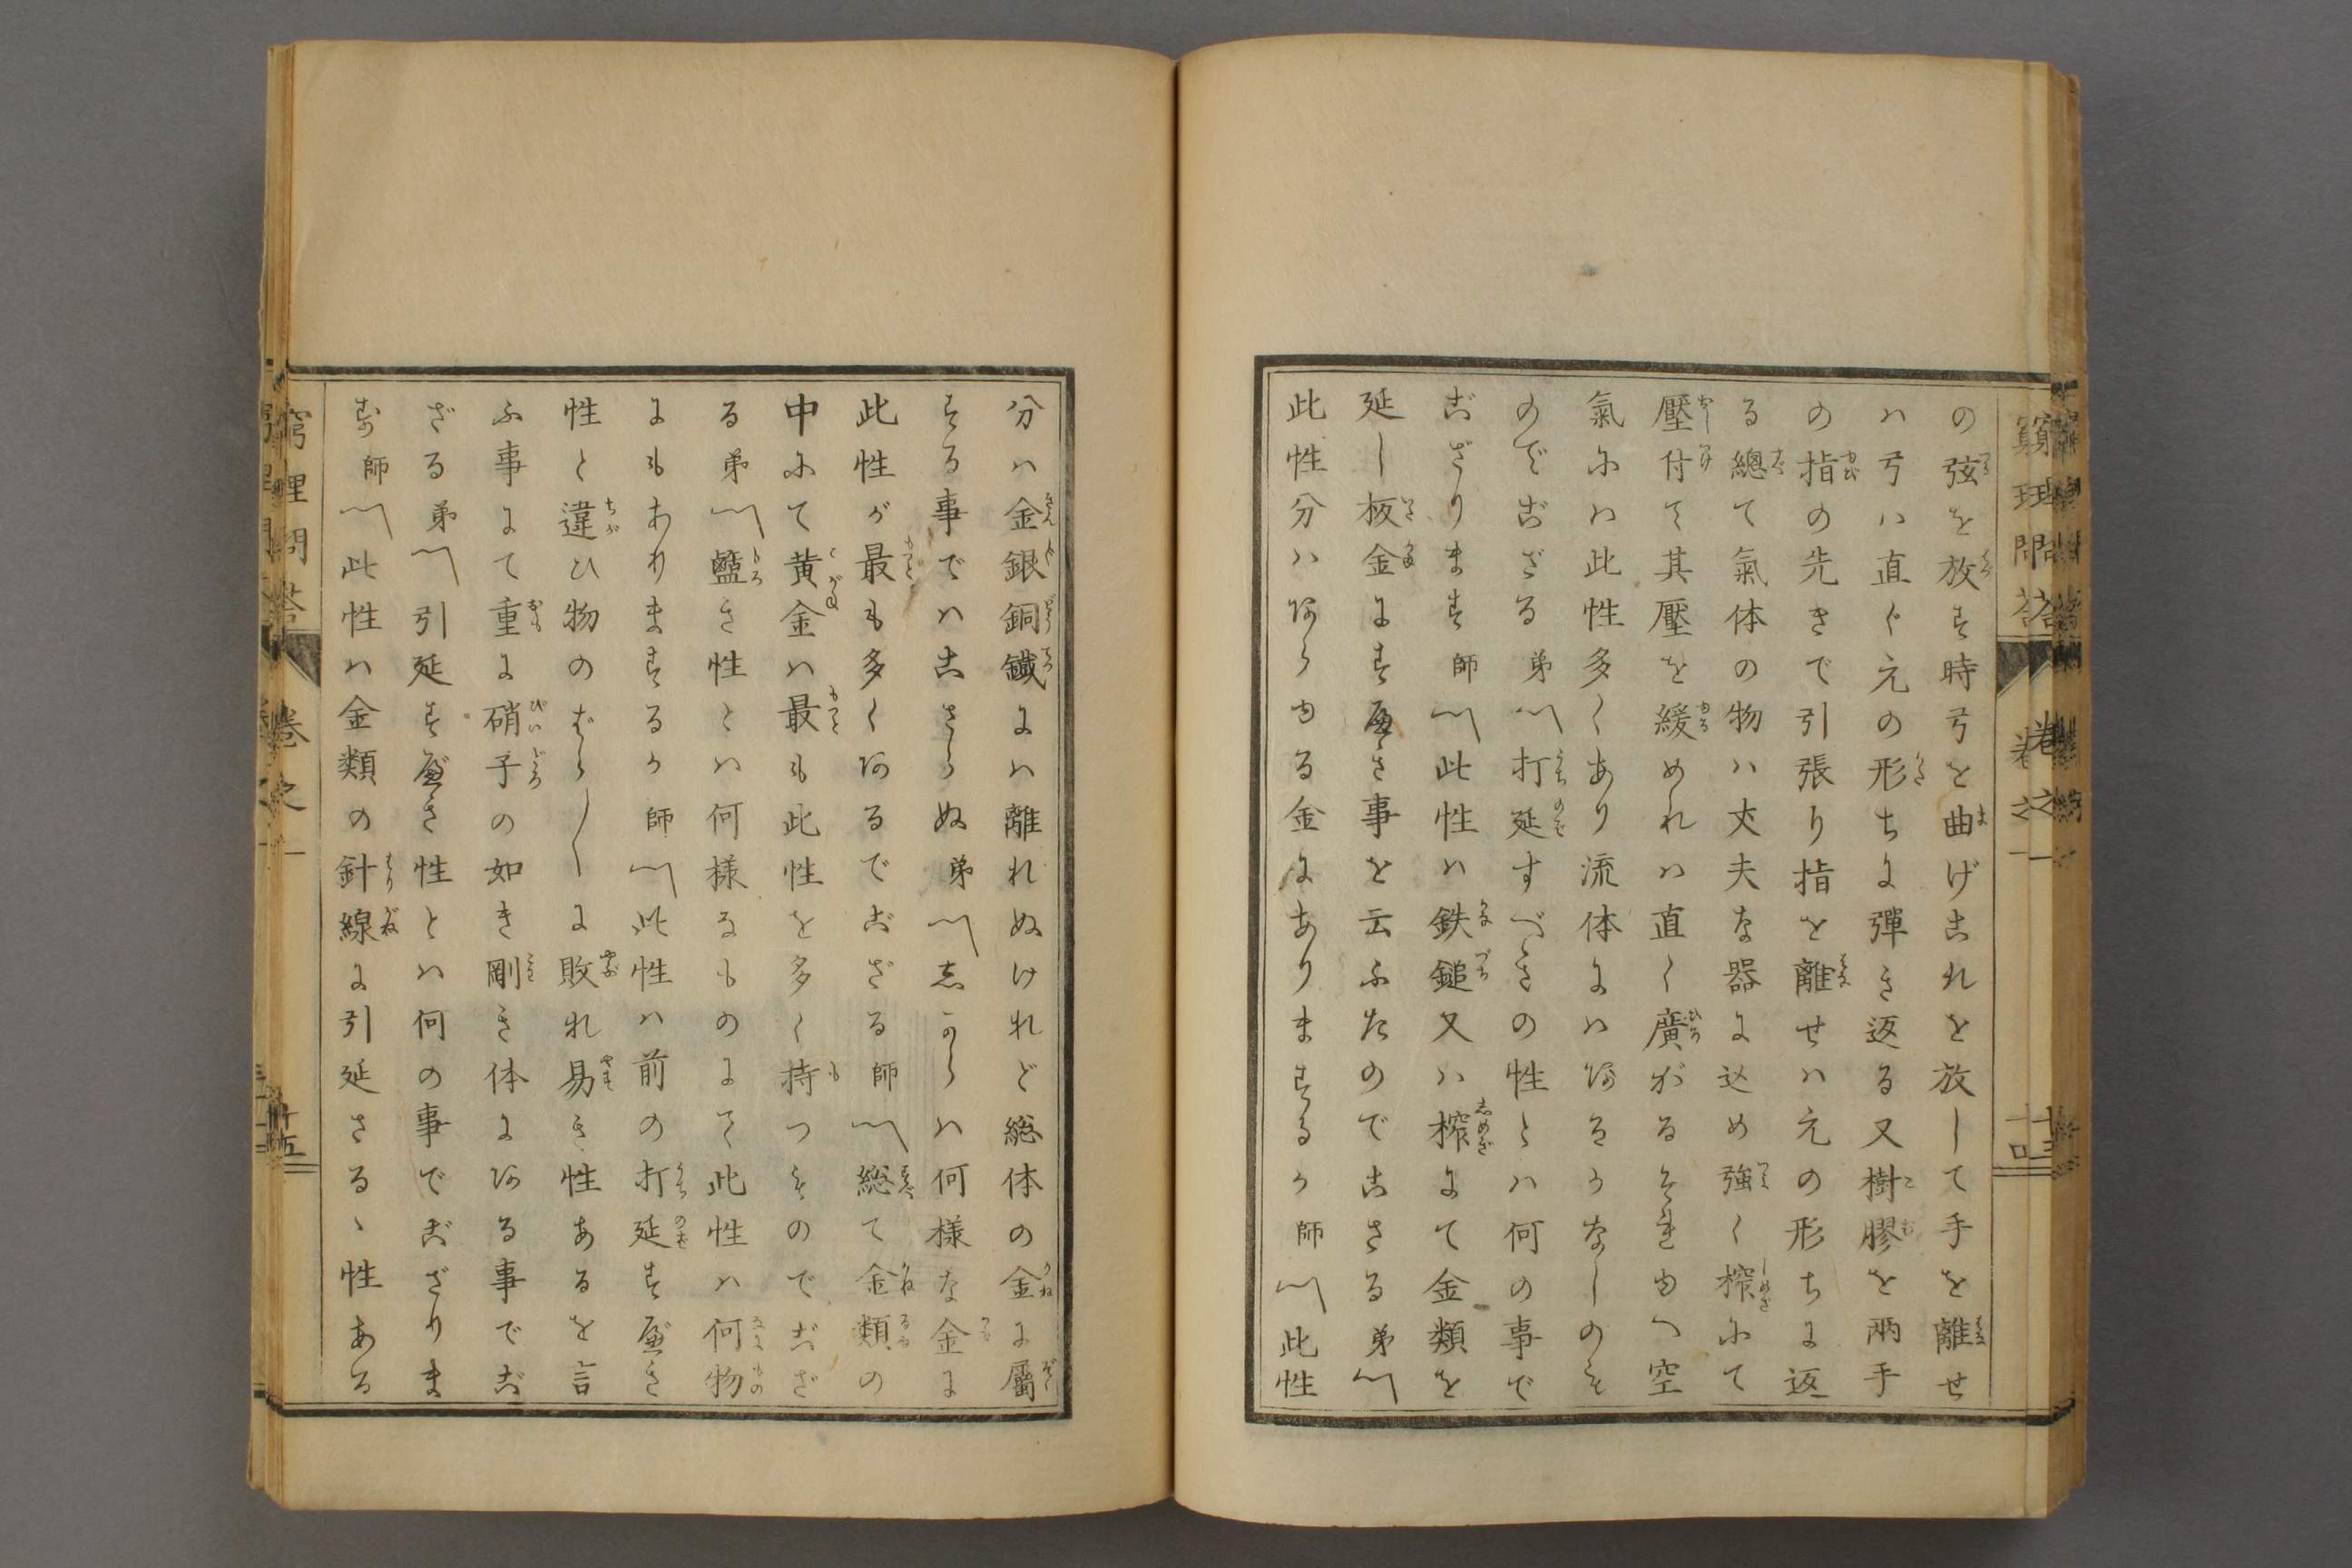 の弦を放す時弓を曲げこれを放して手を離せ
ハ弓ハ直ぐ元の形ちに彈き返る又樹膠を兩手
の指の先きで引張り指を離せハ元の形ちに返
る總て氣体の物ハ丈夫な器に込め強く榨にて
壓付て其壓を緩めれハ直く廣がるそれゆへ空
氣にハ此性多くあり流体にハ阿るうなしのも
のでござる 弟〽打延すべきの性とハ何の事で
ござります 師〽此性ハ鉄鎚又ハ榨にて金類を
延し板金にすべき事を云ふたのでこさる 弟〽
此性分ハ阿らゆる金にありまするか 師〽此性
分ハ金銀銅鐵にハ離れぬけれど総体の金に屬
する事でハこさらぬ 弟〽しからハ何様な金に
此性が最も多く阿るでござる 師〽総て金類の
中にて黄金ハ最も此性を多く持つものでござ
る 弟〽盬き性とハ何様なものにて此性ハ何物
にもありまするか 師〽此性ハ前の打延すべき
性と違ひ物のばら〳〵に敗れ易き性あるを言
ふ事にて重に硝子の如き剛き体に阿る事でご
ざる 弟〽引延すべき性とハ何の事でござりま
すか 師〽此性ハ金類の針線に引延さるゝ性ある
窮理問答 巻之一